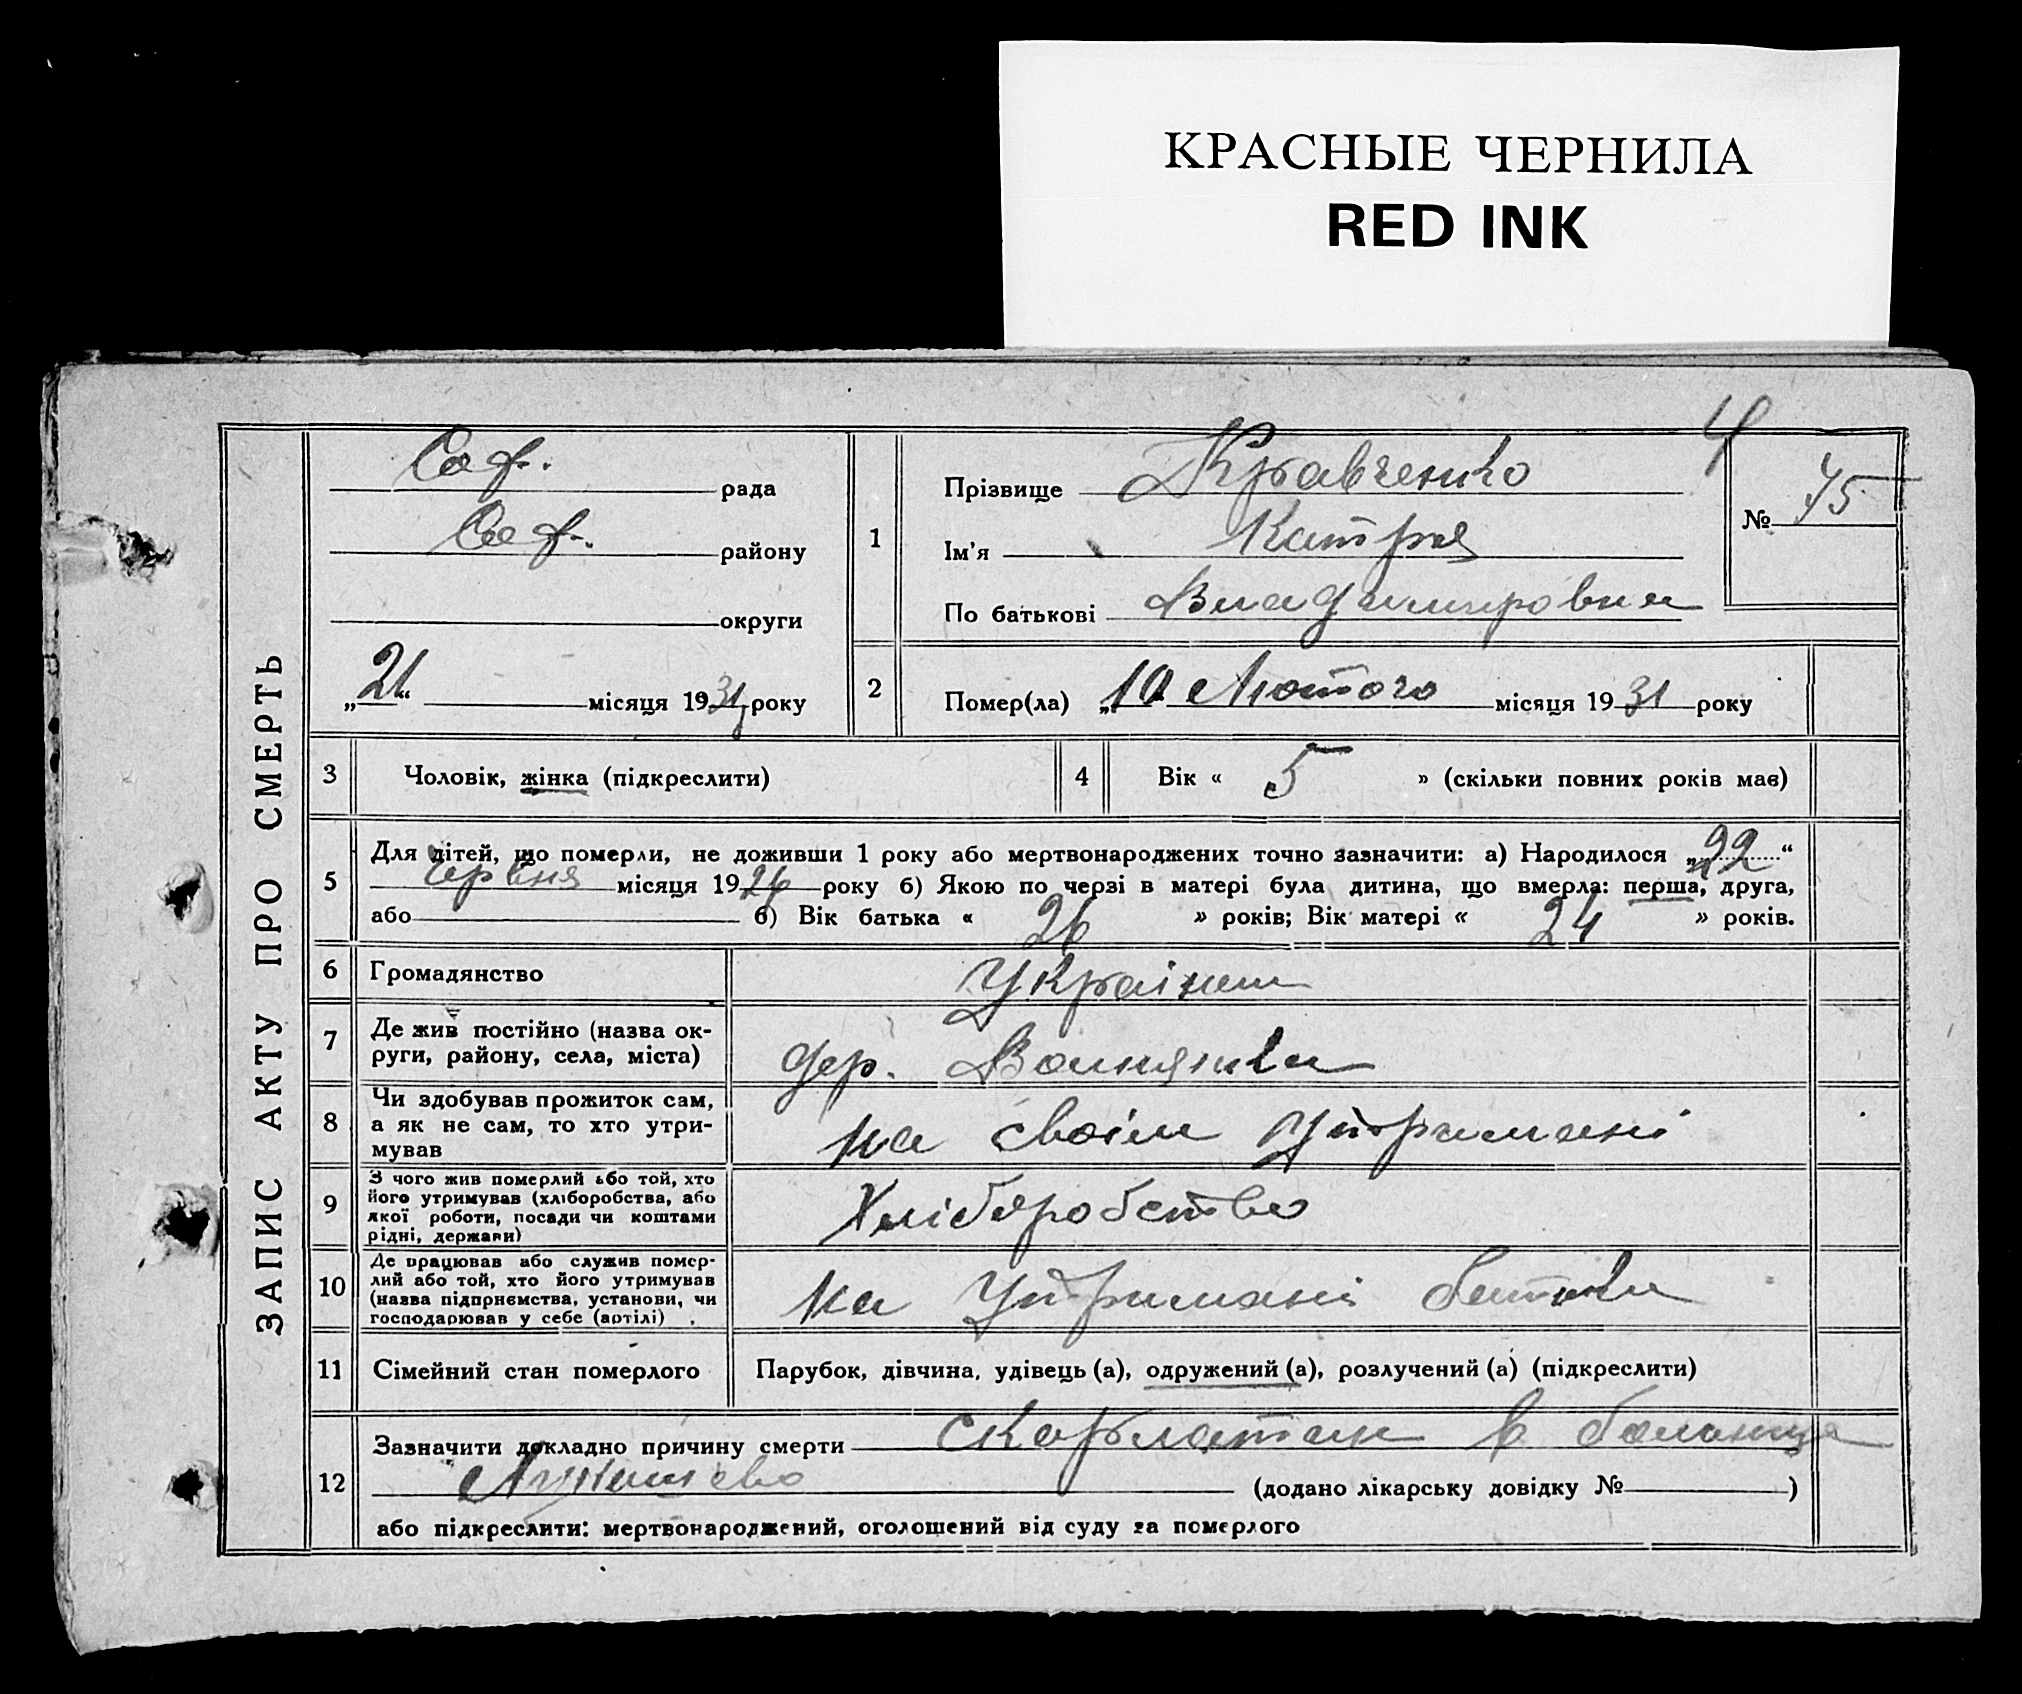 КРАСНЫЕ ЧЕРНИЛА
RED INK
ЗАПИС АКТУ ПРО СМЕРТЬ
Соф. рада
Соф. району
округи
„21“ місяця 1931 року
4
1
Прізвище Кравченко
Ім'я Катря
По батькові Владимировна
№ 75
2
Помер(ла) „10 Лютого місяця 1931 року
3
Чоловік, жінка (підкреслити)
4
Вік « 5 » (скільки повних років має)
5
Для дітей, що померли, не доживши 1 року або мертвонароджених точно зазначити: а) Народилося „22“
червня місяця 1926 року б) Якою по черзі в матері була дитина, що вмерла: перша, друга,
або б) Вік батька « 26 » років; Вік матері « 24 » років.
6
Громадянство
7
Де жив постійно (назва ок-
руги, району, села, міста)
дер.
8
Чи здобував прожиток сам,
а як не сам, то хто утри-
мував
на своім утримані
9
З чого жив померлий або той, хто
його утримував (хліборобства, або
якої роботи, посади чи коштами
рідні, держави)
Хліборобство
10
Де працював або служив помер-
лий або той, хто його утримував
(назва підприємства, установи, чи
господарював у себе (артілі)
на утримані батька
11
Сімейний стан померлого
Парубок, дівчина, удівець (а), одружений (а), розлучений (а) (підкреслити)
12
Зазначити докладно причину смерти скарлатин в больнице
(додано лікарську довідку № )
або підкреслити: мертвонароджений, оголошений від суду за померлого